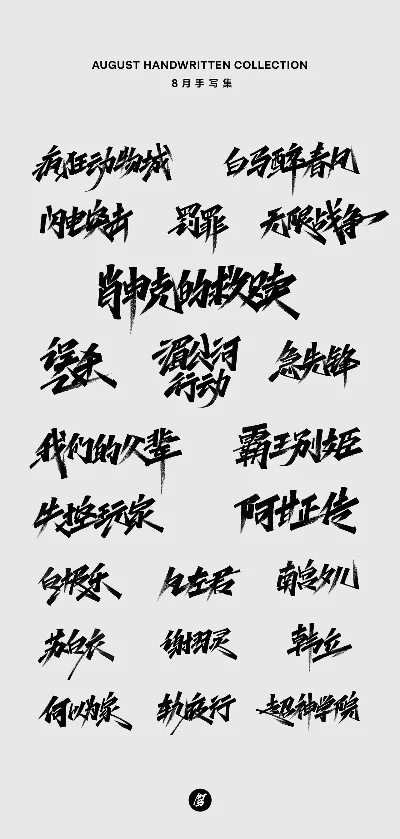 AUGUST HANDWRITTEN COLLECTION
8月手写集
疯狂动物城 白马醉春风
闪电突击 罚罪 无限战争
肖申克的救赎
误杀 湄公河行动 急先锋
我们的父辈 霸王别姬
失控玩家 阿甘正传
南宫夕儿
苏白衣 谢玲灵 韩立
何以为家 轨夜行 超神学院